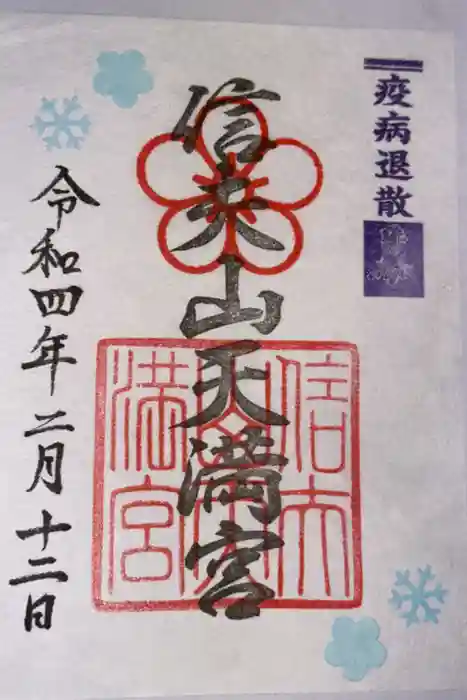 疫病退散
信夫山天満宮
信夫山天満宮
令和四年二月十二日